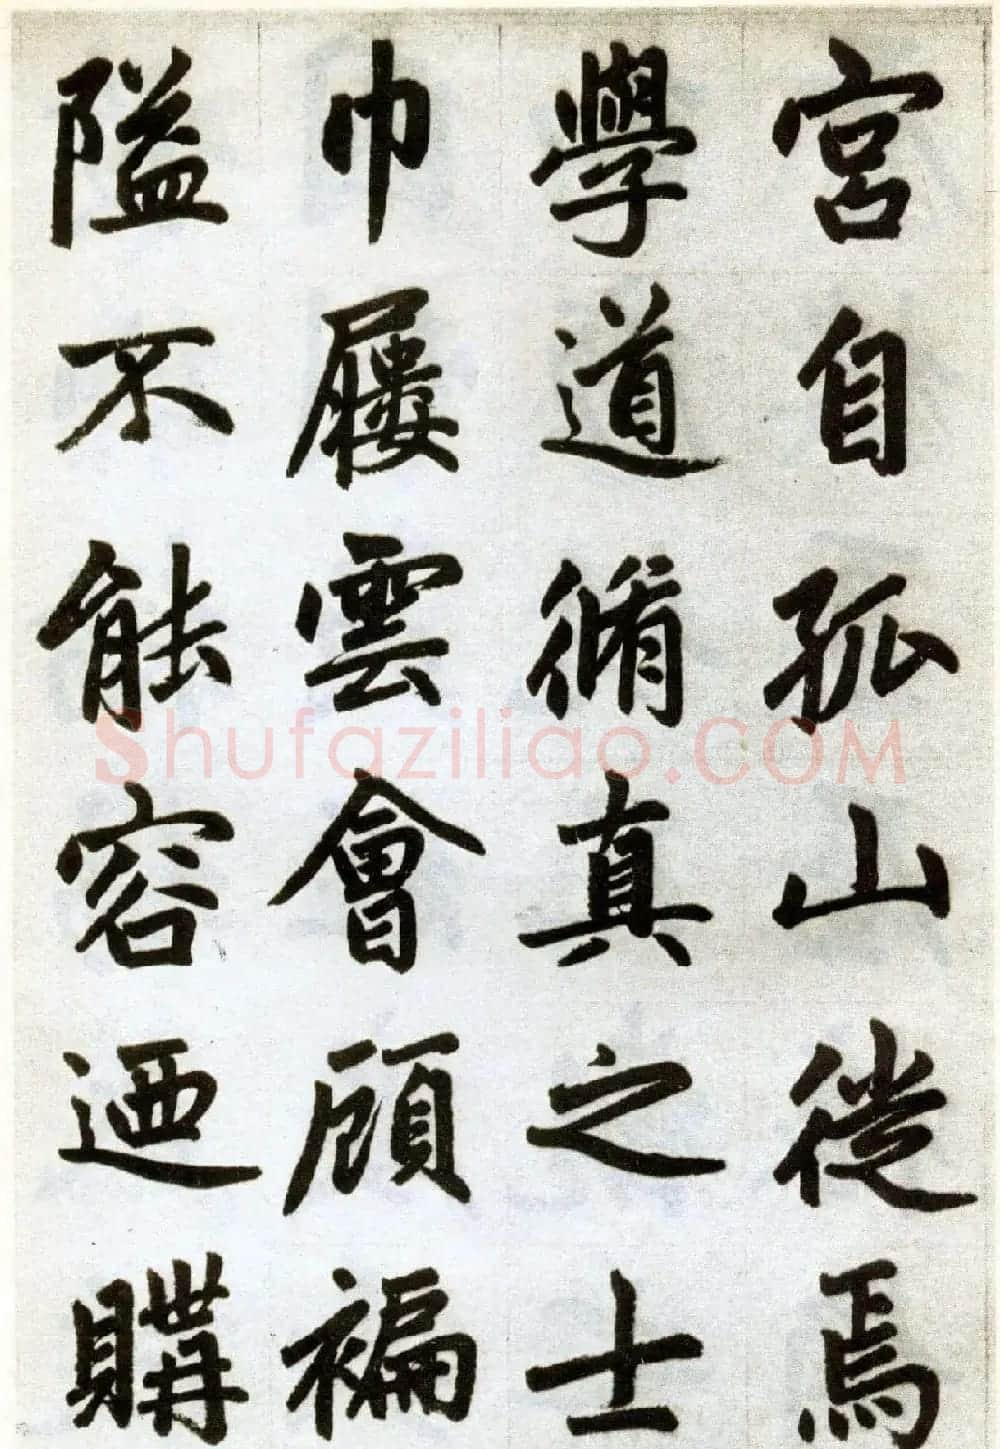 宮自孤山徙焉
學道脩真之士
巾屨雲會顧褊
隘不能容迺購
Shufaziliao.COM